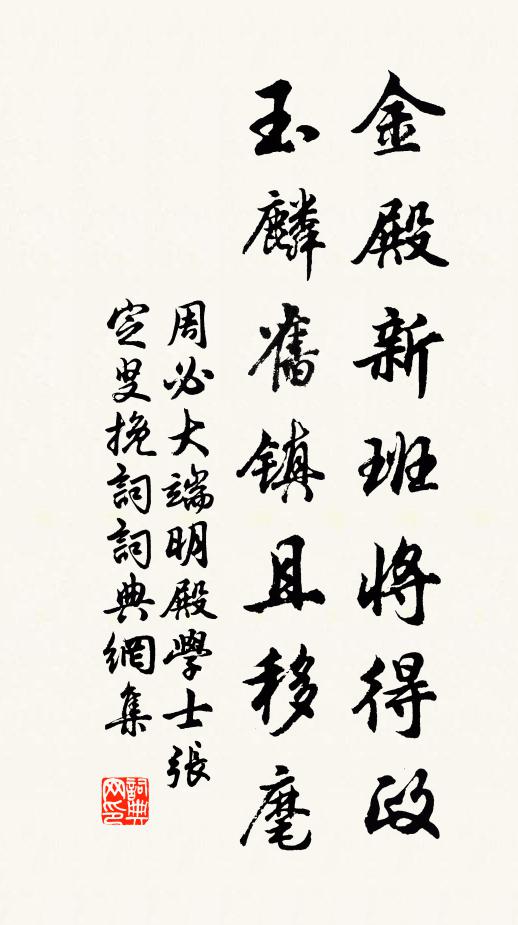 金殿新班將得政
玉麟舊鎮且移麾
周必大端明殿學士張
定叟挽詞詞典網集
詞典
网印